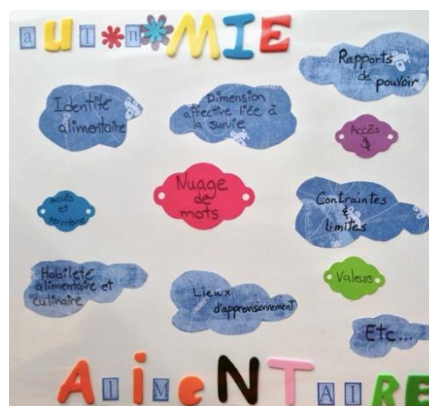 auTonOMIE
Rapports
de
pouvoir
Identité
alimentaire
Dimension
affective liée à
la survie
Accès
$
Nuage
de
mots
Accès et
territoire
Contraintes
&
limites
Habileté
alimentaire et
culinaire
Lieux
d'approvisionnement
Valeurs
Etc...
AliMeNTAIRE